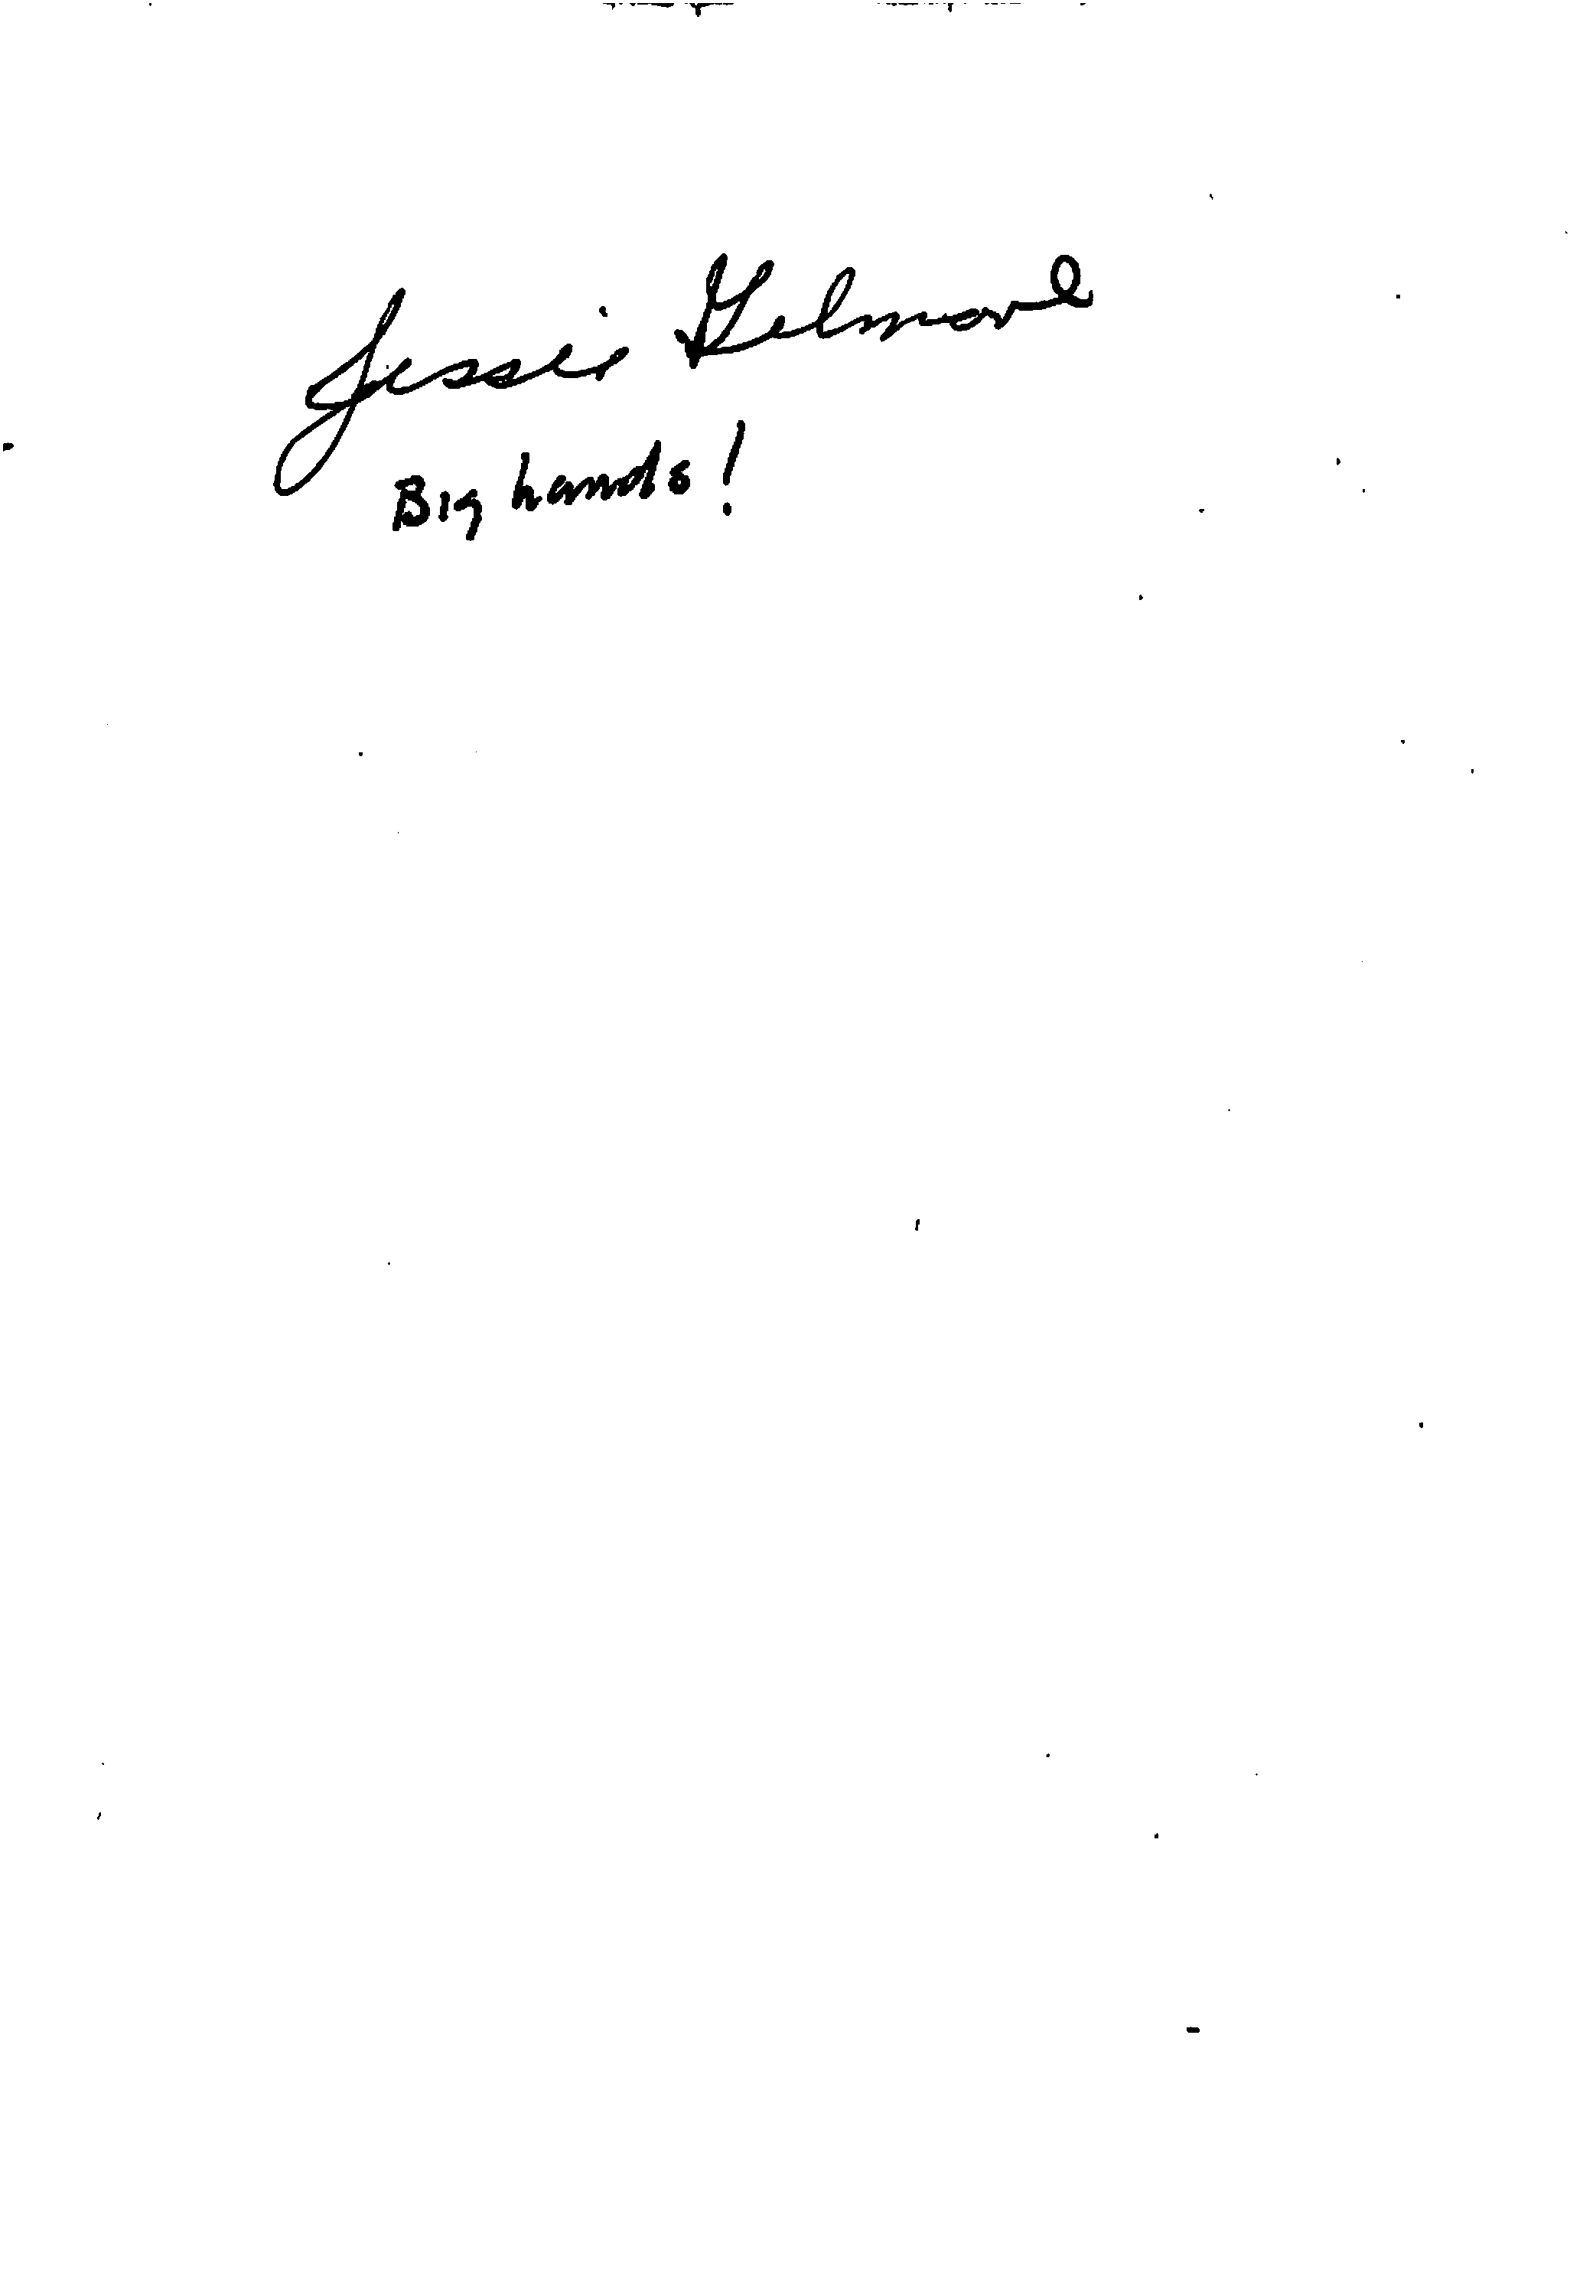 Jessie Gilmore
Big hands!